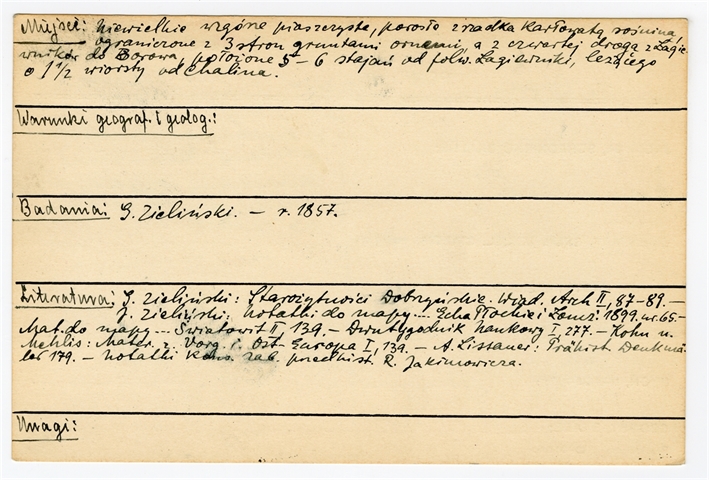 Miejsc: Niewielkie wzgórze piaszczyste, porosłe zrzadka karłowatą rośliną,
ograniczone z 3 stron gruntami ornemi, a z czwartej drogą z Łagie-
wnik do Borowa, położone 5-6 stajań od folw. Łagiewniki, leżącego
o 1 1/2 wiorsty od Chalina.
Warunki geograf. i geolog.:
Badania: G. Zieliński. – r. 1857.
Literatura: G. Zieliński: Starożytności Dobrzyńskie. Wiad. Arch II, 87-89. –
J. Zieliński: Notatki do mapy... Echa Płockie i Łomż. 1899. nr. 65 –
Mat. do mapy... Światowit II, 139. – Dwutygodnik Naukowy I, 277. – Kohn u.
Mehlis: Mater. z. Vorg. i. Ost. Europa I, 139. – A. Lissauer: Prähist. Denkmä-
ler 179. – Notatki Kons. zab. przedhist. R. Jakimowicza.
Uwagi: